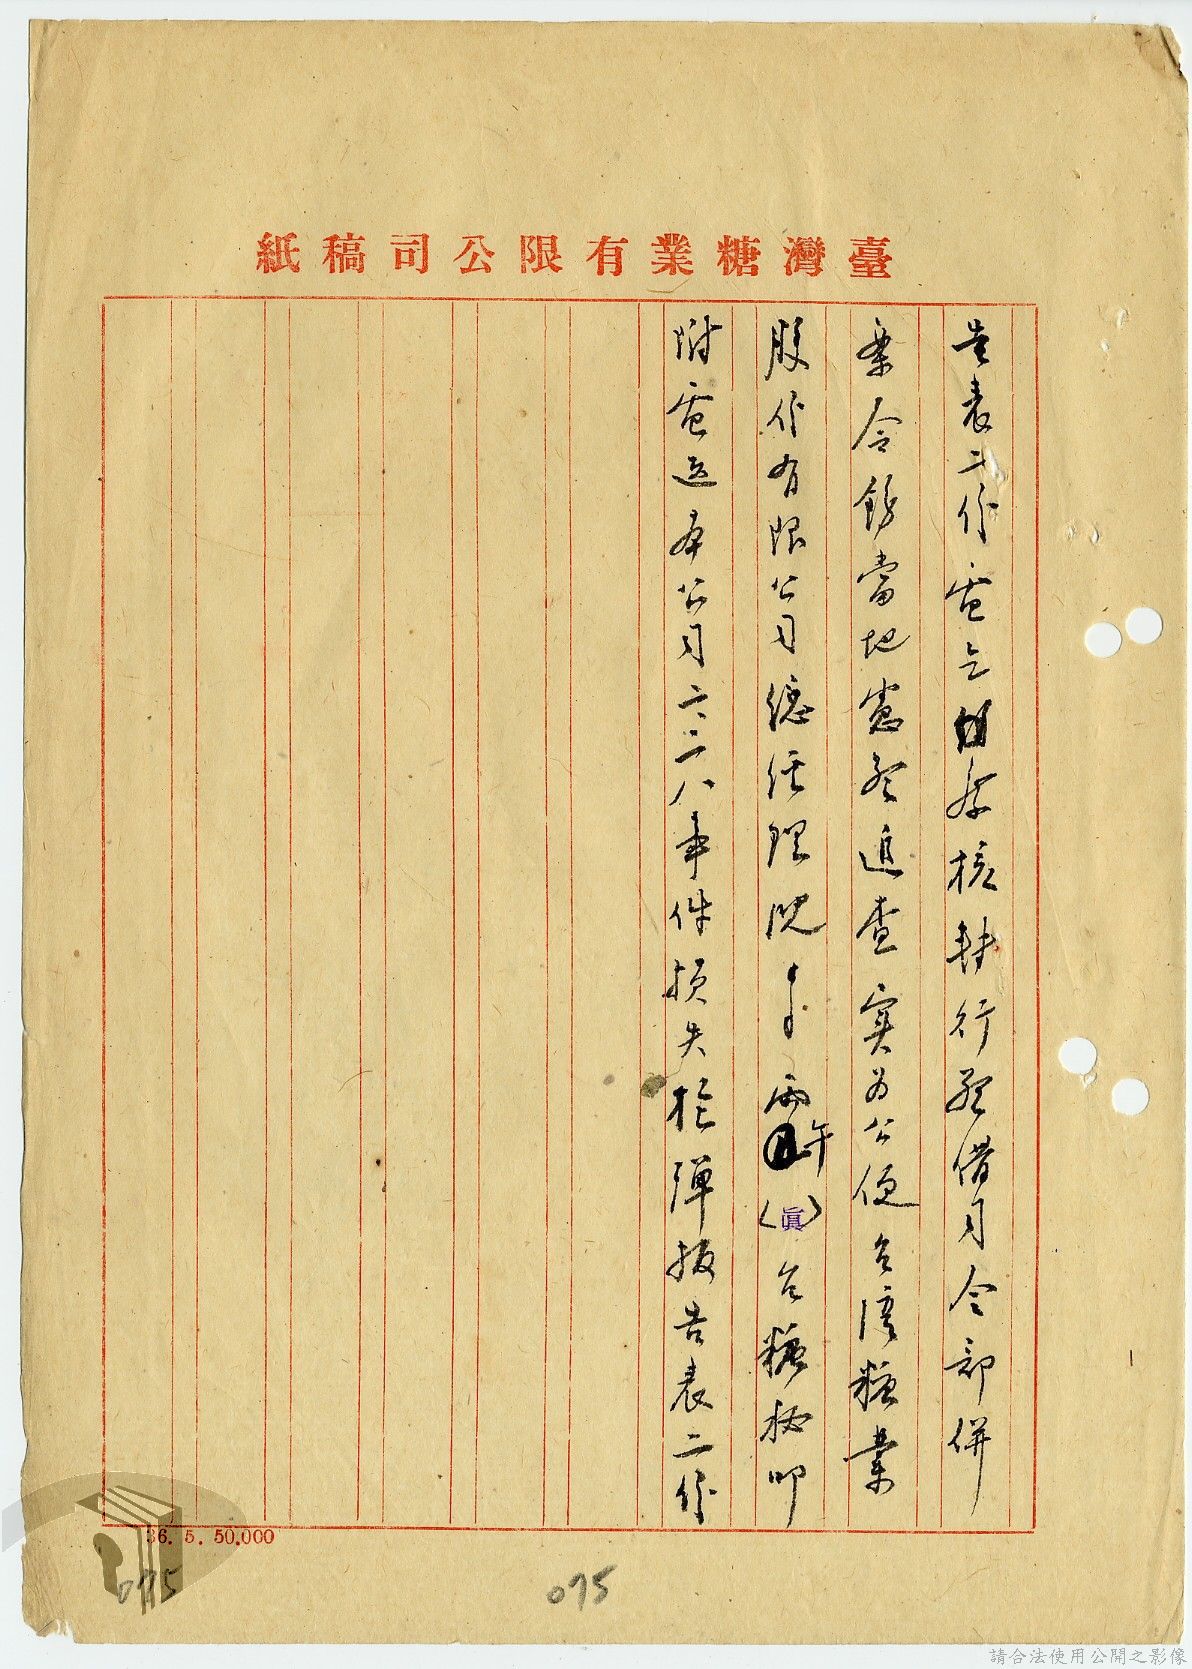 臺灣糖業有限公司稿紙
告表二份電乞 察核轉行警備司令部併
案令飭當地憲警追查實為公便台灣糖業
股份有限公司總經理沈〇兩午(真)台糖秘叩
附電送本公司二二八事件損失槍彈報告表二份
36. 5. 50.000
075
075
請合法使用公開之影像